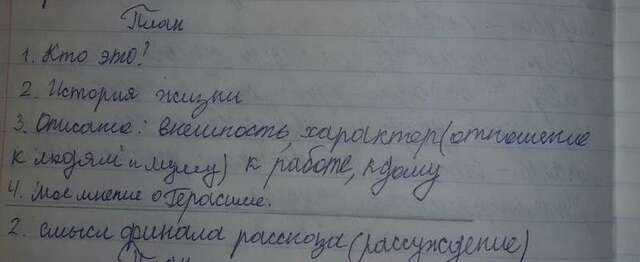 План
1. Кто это?
2. История жизни
3. Описать: внешность, характер (отношение
к людям и Муму) к работе, к дому
4. Мое мнение о Герасиме.
2. смысл финала рассказа (рассуждение)